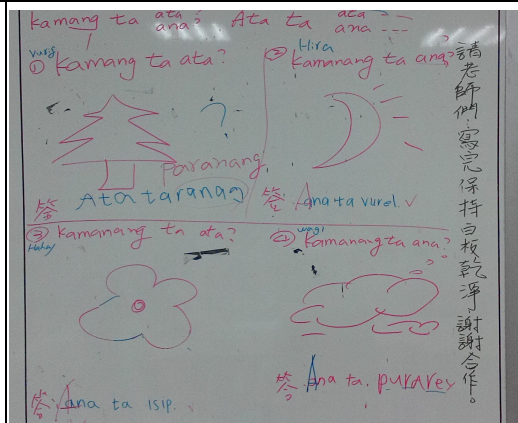 kamang ta ata ana? Ata ta ata ana ---
vurg
① kamang ta ata?
?
Paranang
答 Ata taranag
② Hira
kamanang ta ana?
答: Ana ta vurel. ✓
③ kamanang ta ata?
答: Ana ta isip.
④ wagi
kamanang ta ana?
答: Ana ta. purarey
請老師們:寫完保持白板乾淨謝謝合作。